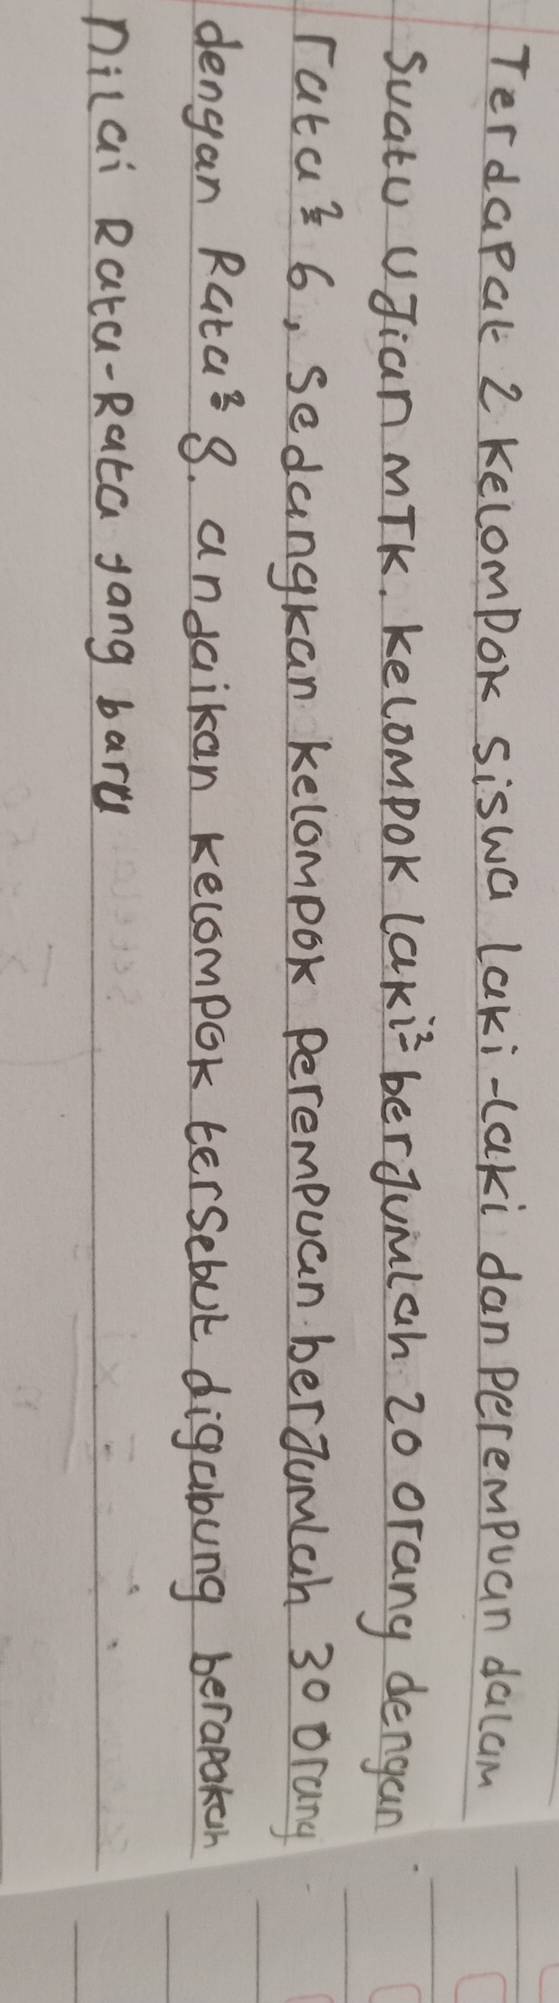 Terdapat 2 kelompok siswa laki-laki dan perempuan dalam
suatu ujian MTK. kelompok laki² berjumlah 20 orang dengan
rata² 6, sedangkan kelompok perempuan berjumlah 30 orang
dengan Rata² 8. andaikan kelompok tersebut digabung berapakah
nilai Rata-Rata yang baru